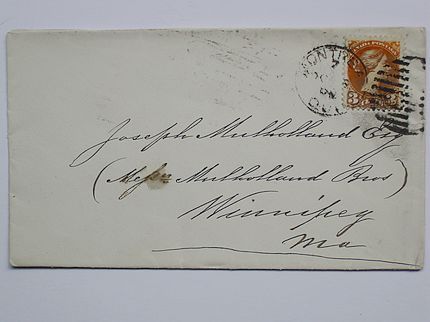 MONTREAL
QUE
CANADA POSTAGE
3 3
Joseph Mulholland Esq
(Messrs Mulholland Bros)
Winnipeg
Ma